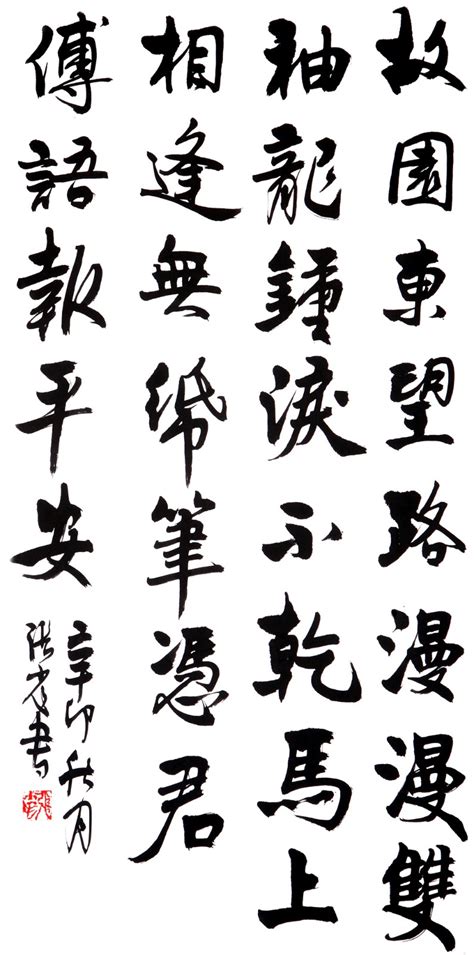 故園東望路漫漫雙
袖龍鍾淚不乾馬上
相逢無紙筆憑君
傳語報平安
辛卯秋月
書